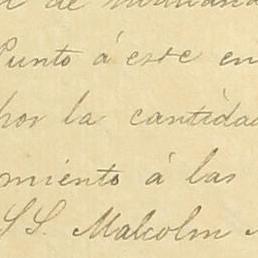 de
Punto á este en
por la cantidad
miento á las
SS. Malcolm